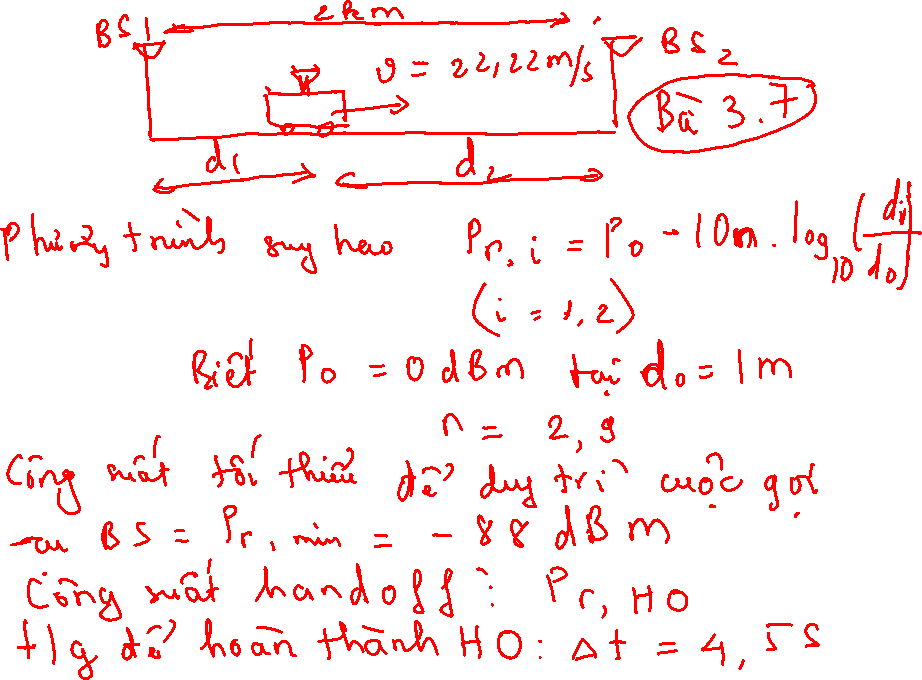 2 km
BS1
BS2
v = 22,22 m/s
Bà 3.7
d1
d2
Phương trình suy hao Pr,i = Po - 10n . log10 (di/do)
(i = 1,2)
Biết Po = 0 dBm tại do = 1m
n = 2,9
Công suất tối thiểu để duy trì cuộc gọi
BS = Pr, min = - 88 dBm
Công suất handoff : Pr, HO
t/g để hoàn thành HO: Δt = 4,5s